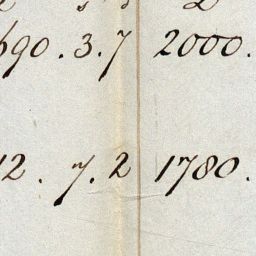 690.3.7 2000.
12.7.2 1780.